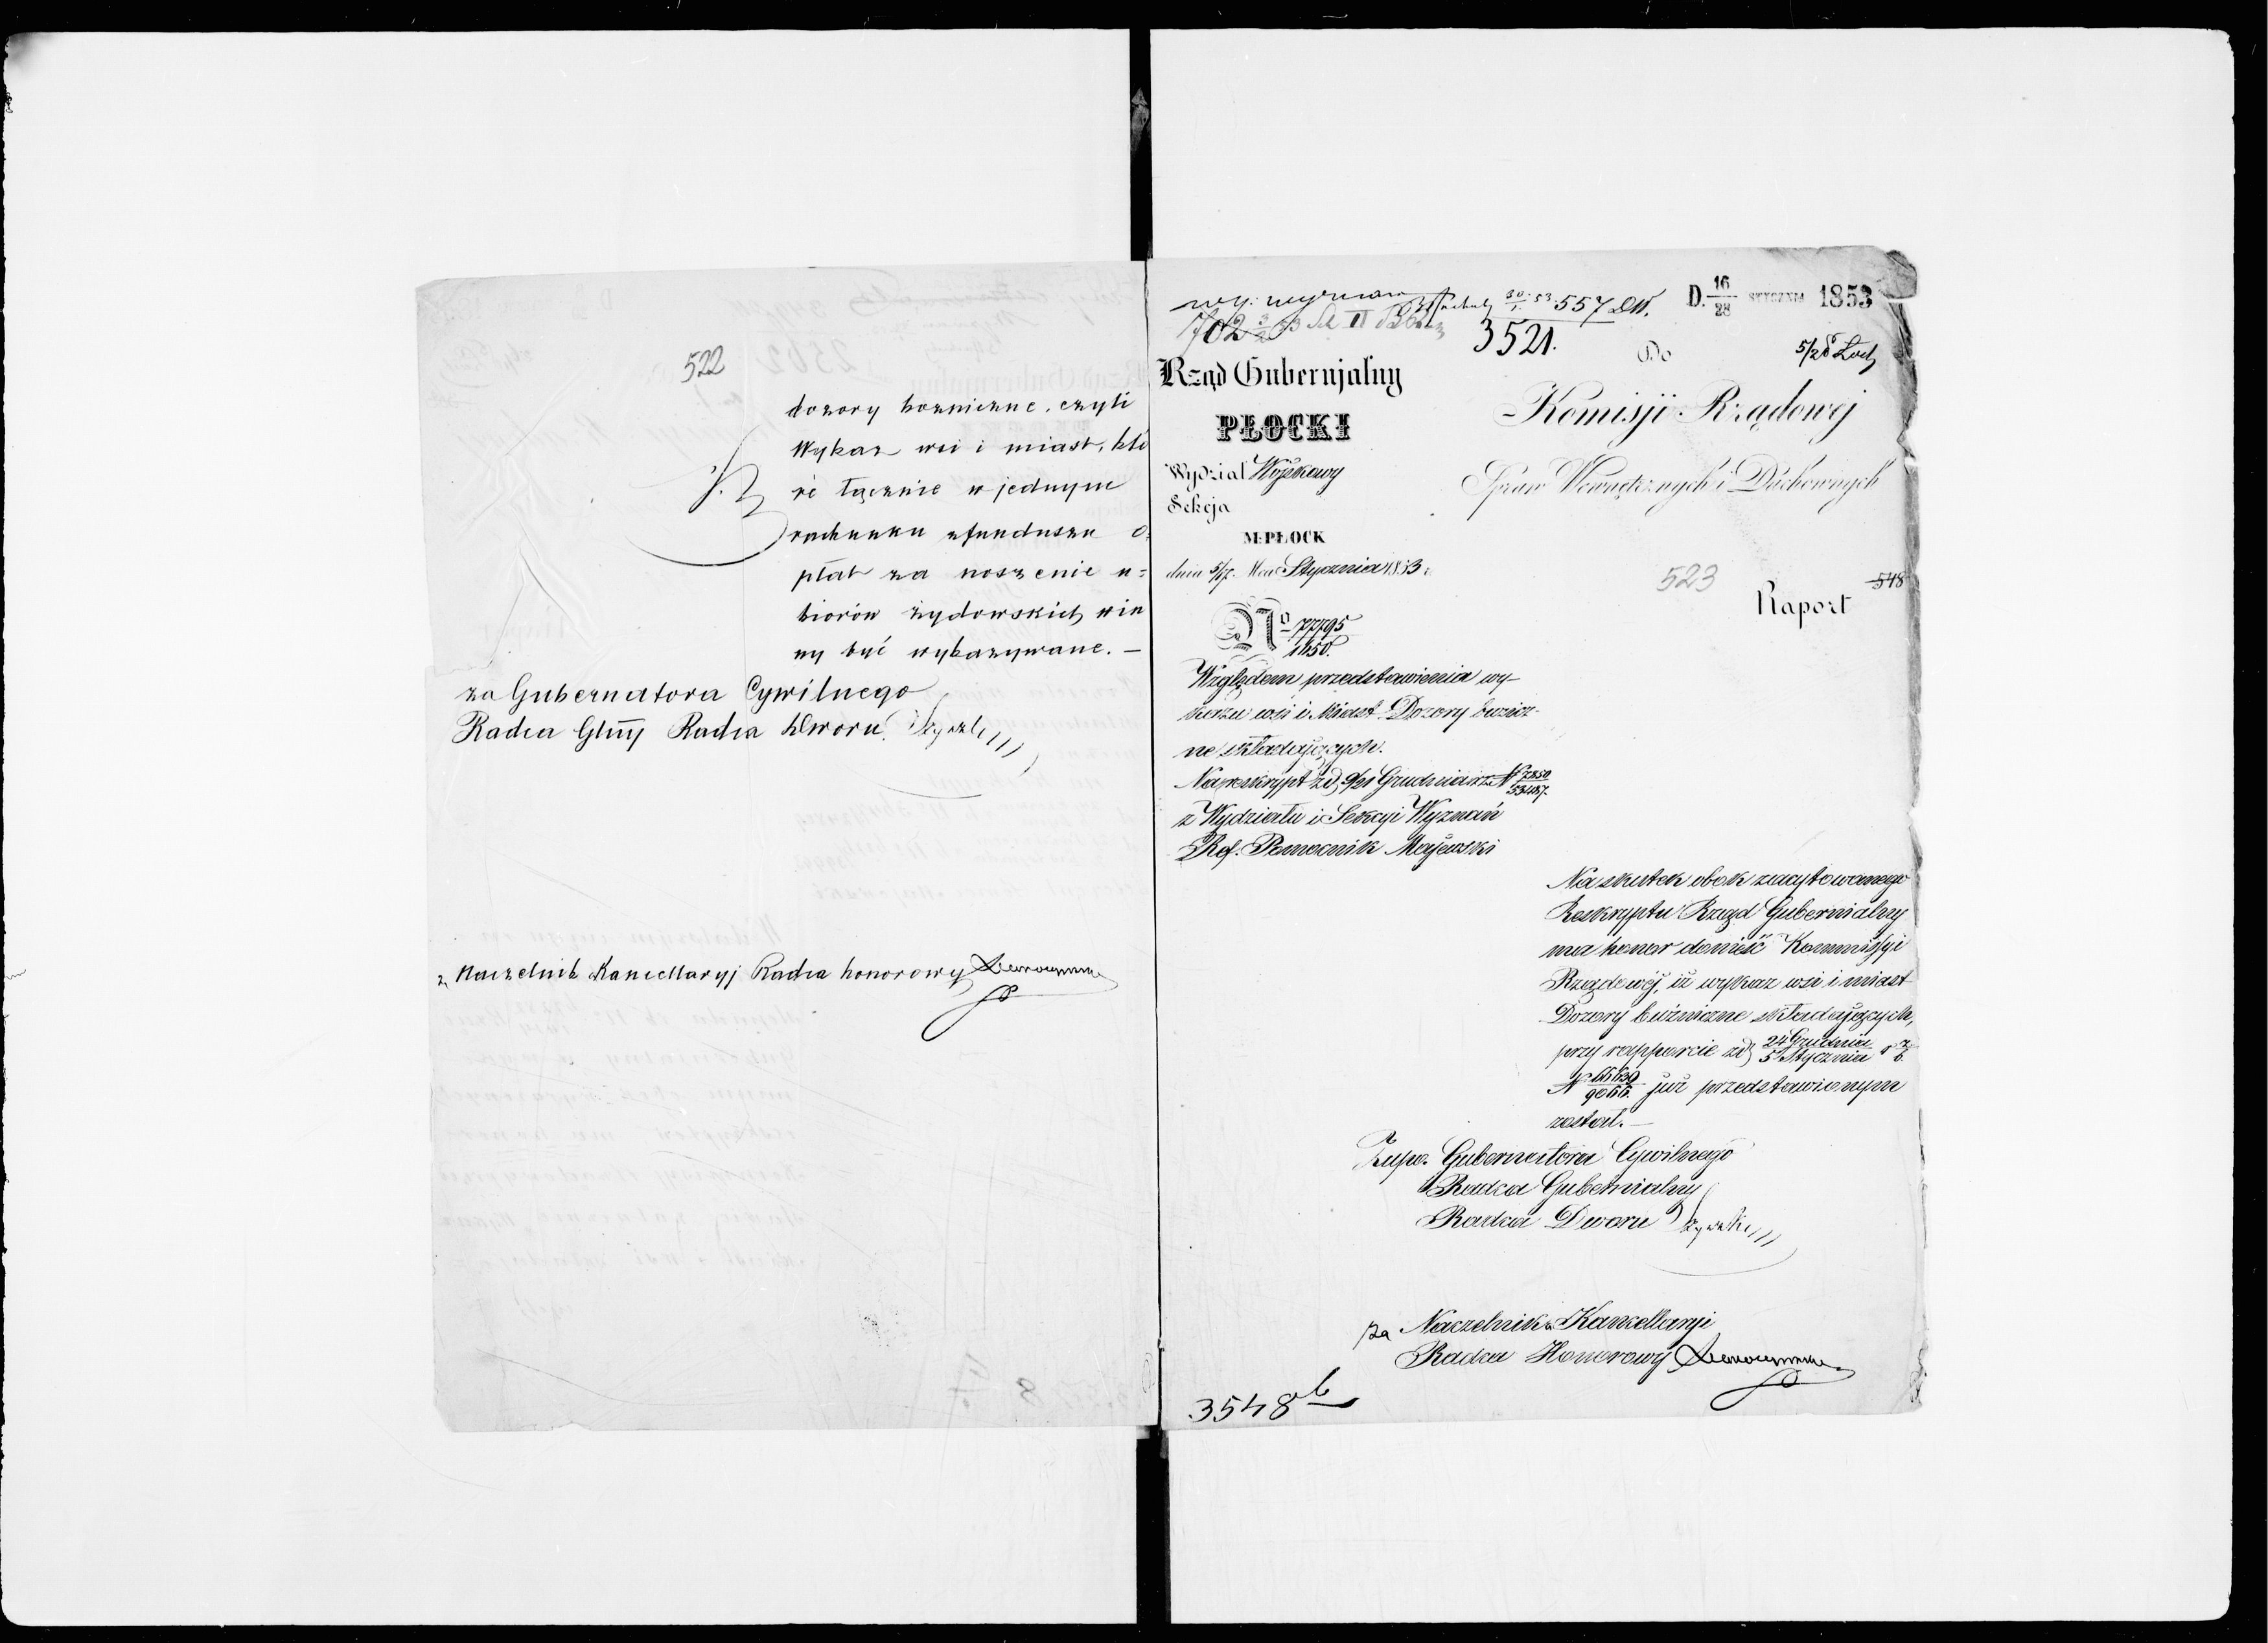 522
dozory bożniczne, czyli
Wykaz wsi i miast, któ
re łącznie w jednym
rachunku z funduszu o
płat za noszenie u=
biorów żydowskich win
ny być wykazywane. —
za Gubernatora Cywilnego
Radca Glny Radca Dworu
Naczelnik Kancellaryj Radca honorowy
702
557
3521.
D. 16/28 STYCZNIA 1853
Rząd Gubernjalny
PŁOCKI
Wydział Wojskowy
Sekcja
M: PŁOCK
dnia 5/17. Mca Stycznia 1853 r.
No 77795/1850.
Względem przedstawienia wy-
kazu wsi i Miast Dozory bużnicz-
ne składających.
Na reskrypt z d. 9/21 Grudnia r. z. N 7250/33487.
z Wydziału i Sekcyi Wyznań
Ref. Pomocnik Majewski
Do
Komisji Rządowej
Spraw Wewnętrznych i Duchownych
523
548
Raport
Na skutek obok zacytowanego
Reskryptu Rząd Gubernialny
ma honor donieść Kommissyi
Rządowéj, iż wykaz wsi i miast
Dozory bużniczne składających,
przy rapporcie z d. 24 Grudnia/5 Stycznia r. z./b.
N 66639/9066. już przedstawionym
został. —
Zup. Gubernatora Cywilnego
Radca Gubernialny
Radca Dworu
za Naczelnika Kancellaryi
Radca Honorowy
3548 b